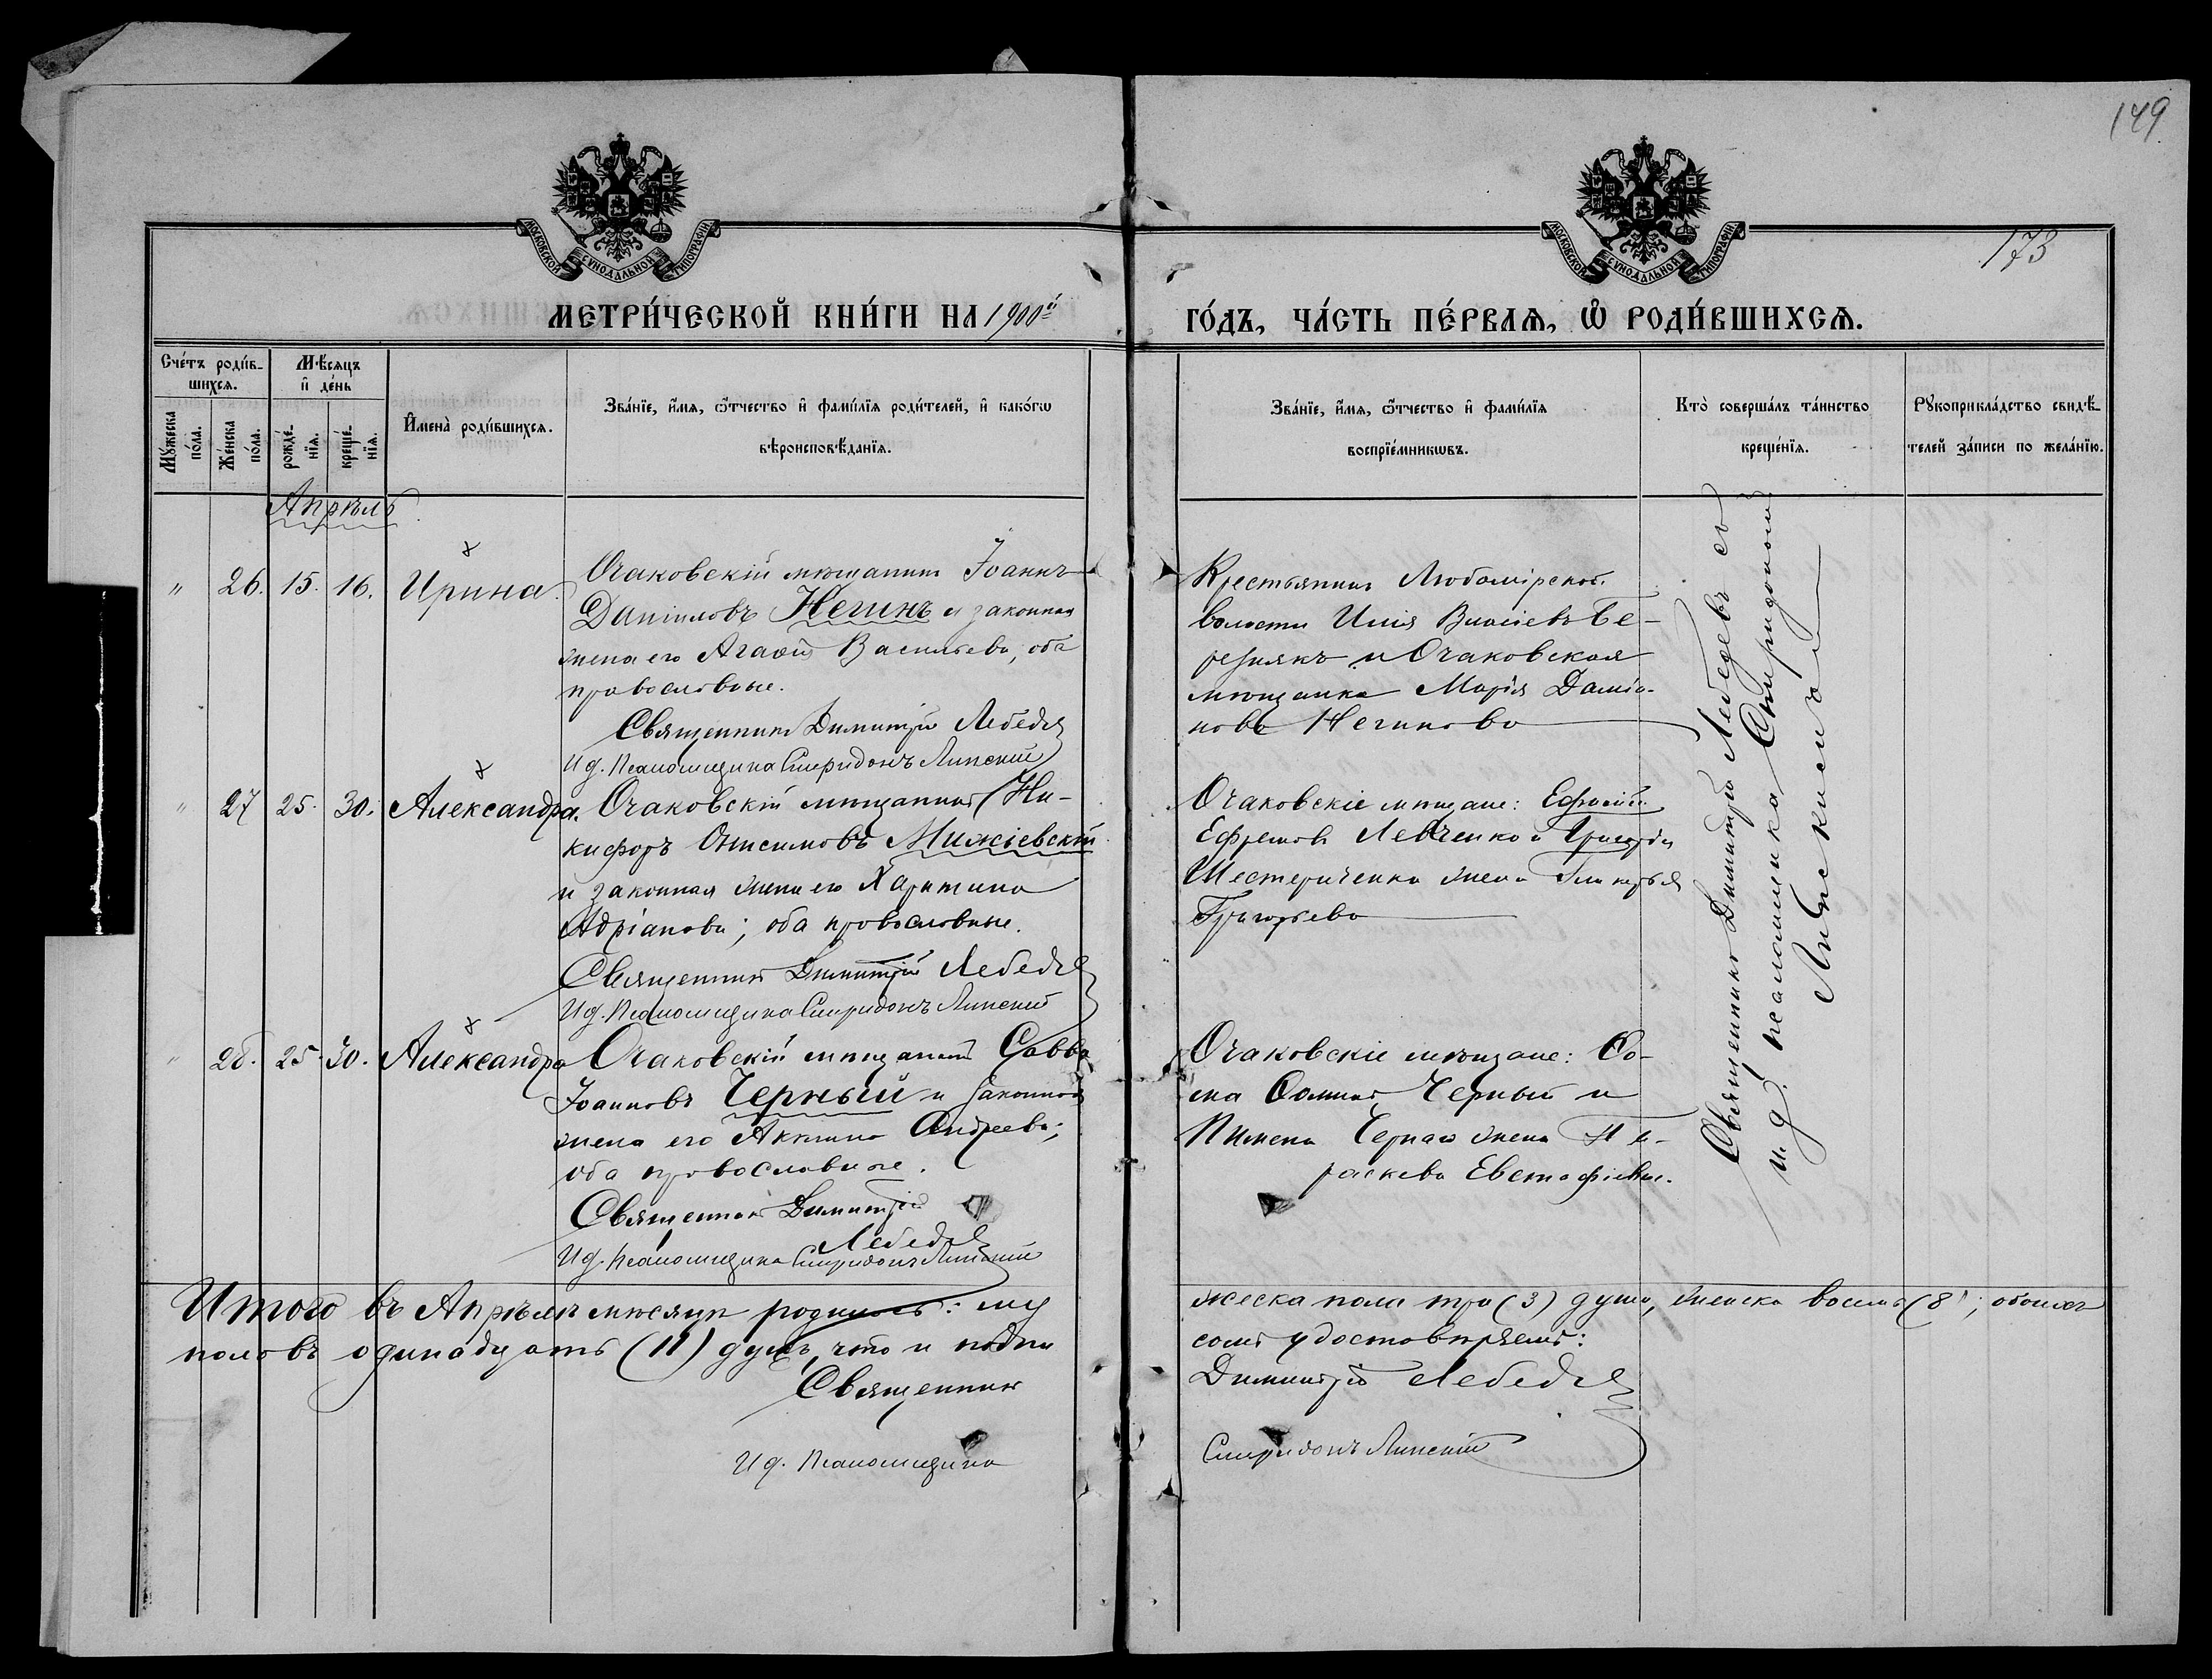 149
173
МОСКОВСКОЙ СѴНОДАЛЬНОЙ ТИПОГРАФІИ
МОСКОВСКОЙ СѴНОДАЛЬНОЙ ТИПОГРАФІИ
МЕТРИ́ЧЕСКОЙ КНИ́ГИ НА 1900й
ГО́ДЪ, ЧА́СТЬ ПЕ́РВАѦ, Ѡ РОДИ́ВШИХСѦ.
Сче́тъ роди́в-
шихсѧ.
Мꙋ́жеска по́ла.
Же́нска по́ла.
Мѣ́сяцъ
и҆ де́нь
рожде́-
нїѧ.
креще́-
нїѧ.
И҆мена̀ роди́вшихсѧ.
Зва́нїе, и҆́мѧ, ѻ҆́тчество и҆ фами́лїѧ роди́телей, и҆ како́гѡ
вѣроисповѣ́данїѧ.
Зва́нїе, и҆́мѧ, ѻ҆́тчество и҆ фами́лїѧ
воспрїе́мникѡвъ.
Кто̀ соверша́лъ та́инство
креще́нїѧ.
Рꙋкоприкла́дство свидѣ́-
телей за́писи по жела́нїю.
Апрѣль
" 26. 15. 16. Ирина.
Очаковскій мѣщанинъ Іоаннъ
Даніиловъ Негинъ и законная
жена его Агаѳія Васильева, оба
православные.
Священникъ Димитрій Лебедевъ
И д. Псаломщика Спиридонъ Липскій
Крестьянинъ Любомірской
волости Илія Власіевъ Бе-
резнякъ и Очаковская
мѣщанка Марія Даніи-
лова Негинова
" 27 25. 30. Александра.
Очаковскій мѣщанинъ Ни-
кифоръ Онисимовъ Мижіевскій
и законная жена его Харитина
Адріанова; оба православные.
Священникъ Димитрій Лебедевъ
И д. Псаломщика Спиридонъ Липскій
Очаковскіе мѣщане:
Ефремовъ Левченко и Григорія
Шестериченка жена Гликерія
Григорьева
" 28. 25. 30. Александра
Очаковскій мѣщанинъ Савва
Іоанновъ Черный и законная
жена его Акилина Андреева;
оба православные.
Священникъ Димитрій
Лебедевъ
И д. Псаломщика Спиридонъ Липскій
Очаковскіе мѣщане: Ѳо-
ма Ѳоминъ Черный и
Пимена Чернаго жена Па-
раскева Евстафіева.
Священникъ Димитрій Лебедевъ съ
и. д. псаломщика Спиридономъ
Липскимъ
Итого въ Апрѣлѣ мѣсяцѣ родилось: му
жеска пола три (3) души, женска восемь (8); обоихъ
половъ одинадцать (11) душъ, что и подпи
сомъ удостовѣряемъ:
Священникъ
Димитрій Лебедевъ
И д. Псаломщика
Спиридонъ Липскій